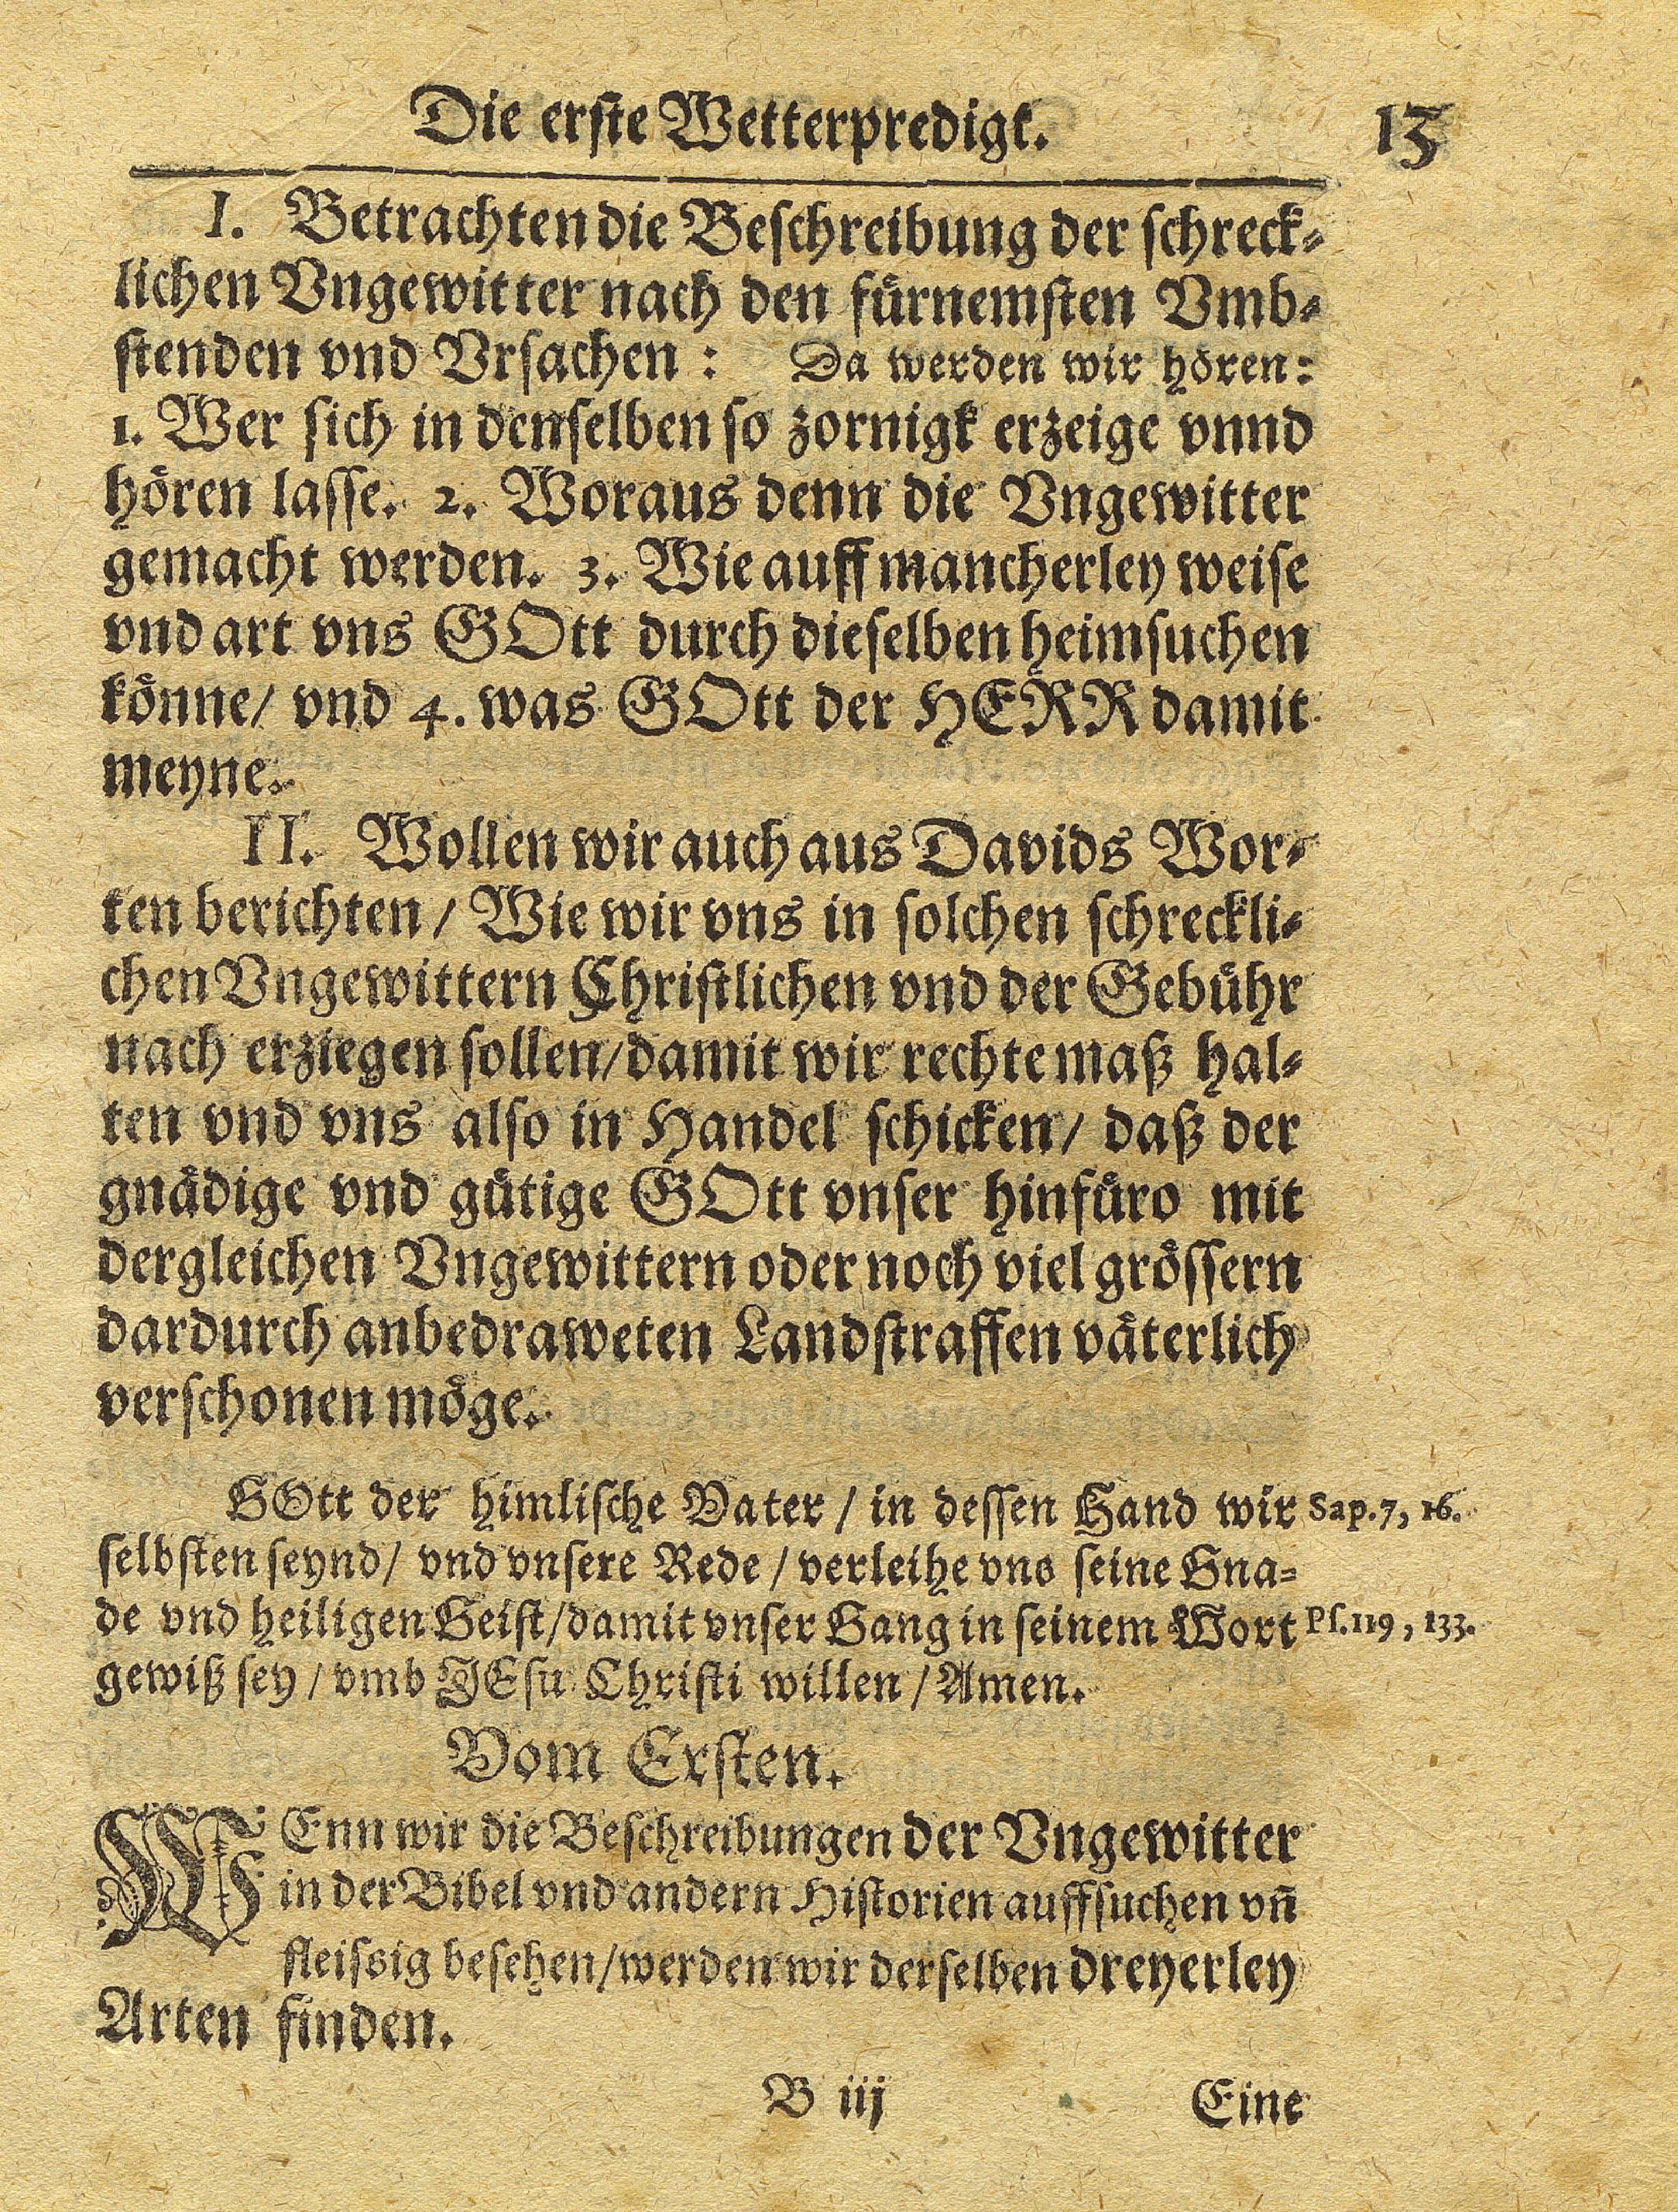 Die erste Wetterpredigt. 13
I. Betrachten die Beschreibung der schreck-
lichen Vngewitter nach den fürnemsten Vmb-
stenden vnd Vrsachen: Da werden wir hören:
1. Wer sich in denselben so zornigk erzeige vnnd
hören lasse. 2. Woraus denn die Vngewitter
gemacht werden. 3. Wie auff mancherley weise
vnd art vns GOtt durch dieselben heimsuchen
könne/ vnd 4. was GOtt der HERR damit
meyne.
II. Wollen wir auch aus Davids Wor-
ten berichten/ Wie wir vns in solchen schreckli-
chen Vngewittern Christlichen vnd der Gebühr
nach erziegen sollen/ damit wir rechte maß hal-
ten vnd vns also in Handel schicken/ daß der
gnädige vnd gütige GOtt vnser hinfüro mit
dergleichen Vngewittern oder noch viel grössern
dardurch anbedraweten Landstraffen väterlich
verschonen möge.
GOtt der himlische Vater/ in dessen Hand wir Sap. 7, 16.
selbsten seynd/ vnd vnsere Rede/ verleihe vns seine Gna-
de vnd heiligen Geist/ damit vnser Gang in seinem Wort Ps. 119, 133.
gewiß sey/ vmb JEsu Christi willen/ Amen.
Vom Ersten.
WEnn wir die Beschreibungen der Vngewitter
in der Bibel vnd andern Historien auffsuchen vn̄
fleissig besehen/ werden wir derselben dreyerley
Arten finden.
B iij Eine